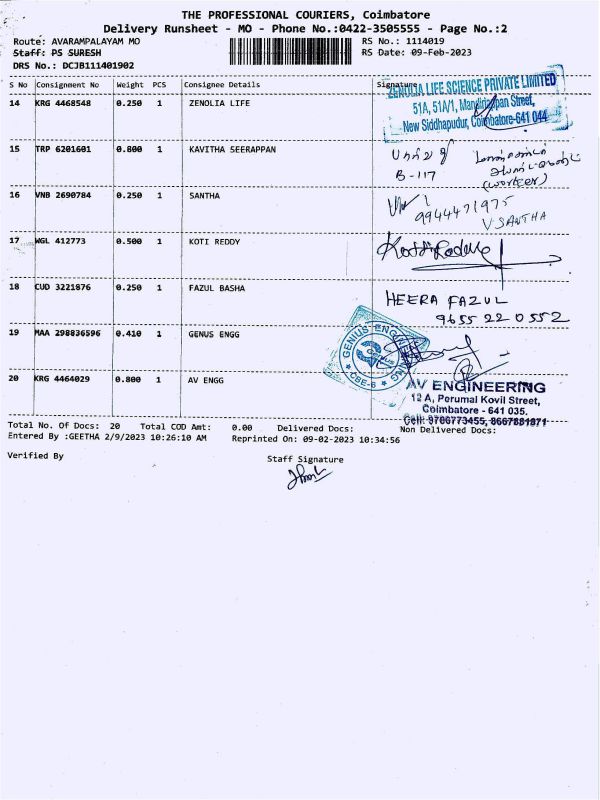 THE PROFESSIONAL COURIERS, Coimbatore
Delivery Runsheet - MO - Phone No.:0422-3505555 - Page No.:2
Route: AVARAMPALAYAM MO RS No.: 1114019
Staff: PS SURESH RS Date: 09-Feb-2023
DRS No.: DCJB111401902
S No Consignment No Weight PCS Consignee Details Signature
14 KRG 4468548 0.250 1 ZENOLIA LIFE
ZENOLIA LIFE SCIENCE PRIVATE LIMITED
51A, 51A/1, Street,
New Siddhapudur, Coimbatore-641 044
15 TRP 6201601 0.800 1 KAVITHA SEERAPPAN
B-117
(worker)
16 VNB 2690784 0.250 1 SANTHA
9944471975
V SANTHA
17 WGL 412773 0.500 1 KOTI REDDY
18 CUD 3221876 0.250 1 FAZUL BASHA
HEERA FAZUL
9655220552
19 MAA 298836596 0.410 1 GENUS ENGG
GENIUS ENGG
CBE-6
20 KRG 4464029 0.800 1 AV ENGG
AV ENGINEERING
12 A, Perumal Kovil Street,
Coimbatore - 641 035.
Total No. Of Docs: 20 Total COD Amt: 0.00 Delivered Docs: Non Delivered Docs:
Entered By :GEETHA 2/9/2023 10:26:10 AM Reprinted On: 09-02-2023 10:34:56
Verified By Staff Signature